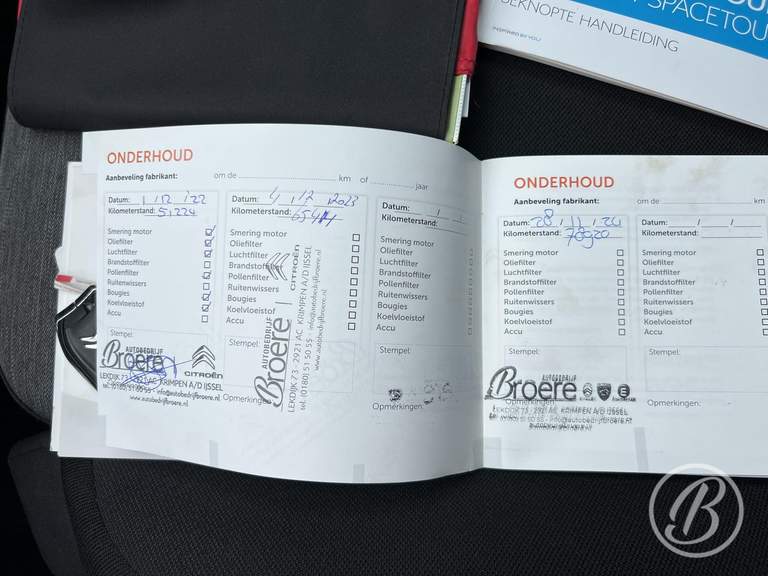 SPACETOU
BEKNOPTE HANDLEIDING
INSPIRED BY YOU
ONDERHOUD
Aanbeveling fabrikant: om de km of jaar
Datum: 1 / 12 / 22
Kilometerstand: 51224
Smering motor
Oliefilter
Luchtfilter
Brandstoffilter
Pollenfilter
Ruitenwissers
Bougies
Koelvloeistof
Accu
Stempel:
AUTOBEDRIJF
Broere
CITROËN
LEKDIJK 73 - 2921 AC KRIMPEN A/D IJSSEL
tel. (0180) 51 50 55 - info@autobedrijfbroere.nl
www.autobedrijfbroere.nl
Datum: 4 / 12 / 2023
Kilometerstand:
Smering motor
Oliefilter
Luchtfilter
Brandstoffilter
Pollenfilter
Ruitenwissers
Bougies
Koelvloeistof
Accu
Stempel:
AUTOBEDRIJF
Broere
CITROËN
LEKDIJK 73 - 2921 AC KRIMPEN A/D IJSSEL
tel. (0180) 51 50 55 - info@autobedrijfbroere.nl
www.autobedrijfbroere.nl
Opmerkingen:
Datum: / /
Kilometerstand:
Smering motor
Oliefilter
Luchtfilter
Brandstoffilter
Pollenfilter
Ruitenwissers
Bougies
Koelvloeistof
Accu
Stempel:
Opmerkingen:
ONDERHOUD
Aanbeveling fabrikant: om de km
Datum: 28 / 11 / 24
Kilometerstand: 78920
Smering motor
Oliefilter
Luchtfilter
Brandstoffilter
Pollenfilter
Ruitenwissers
Bougies
Koelvloeistof
Accu
Stempel:
AUTOBEDRIJF
Broere
Opmerkingen:
LEKDIJK 73, 2921 AC KRIMPEN A/D IJSSEL
(0180) 51 50 55 - info@autobedrijfbroere.nl
www.autobedrijfbroere.nl
Datum: / /
Kilometerstand:
Smering motor
Oliefilter
Luchtfilter
Brandstoffilter
Pollenfilter
Ruitenwissers
Bougies
Koelvloeistof
Accu
Stempel:
Opmerkingen:
B